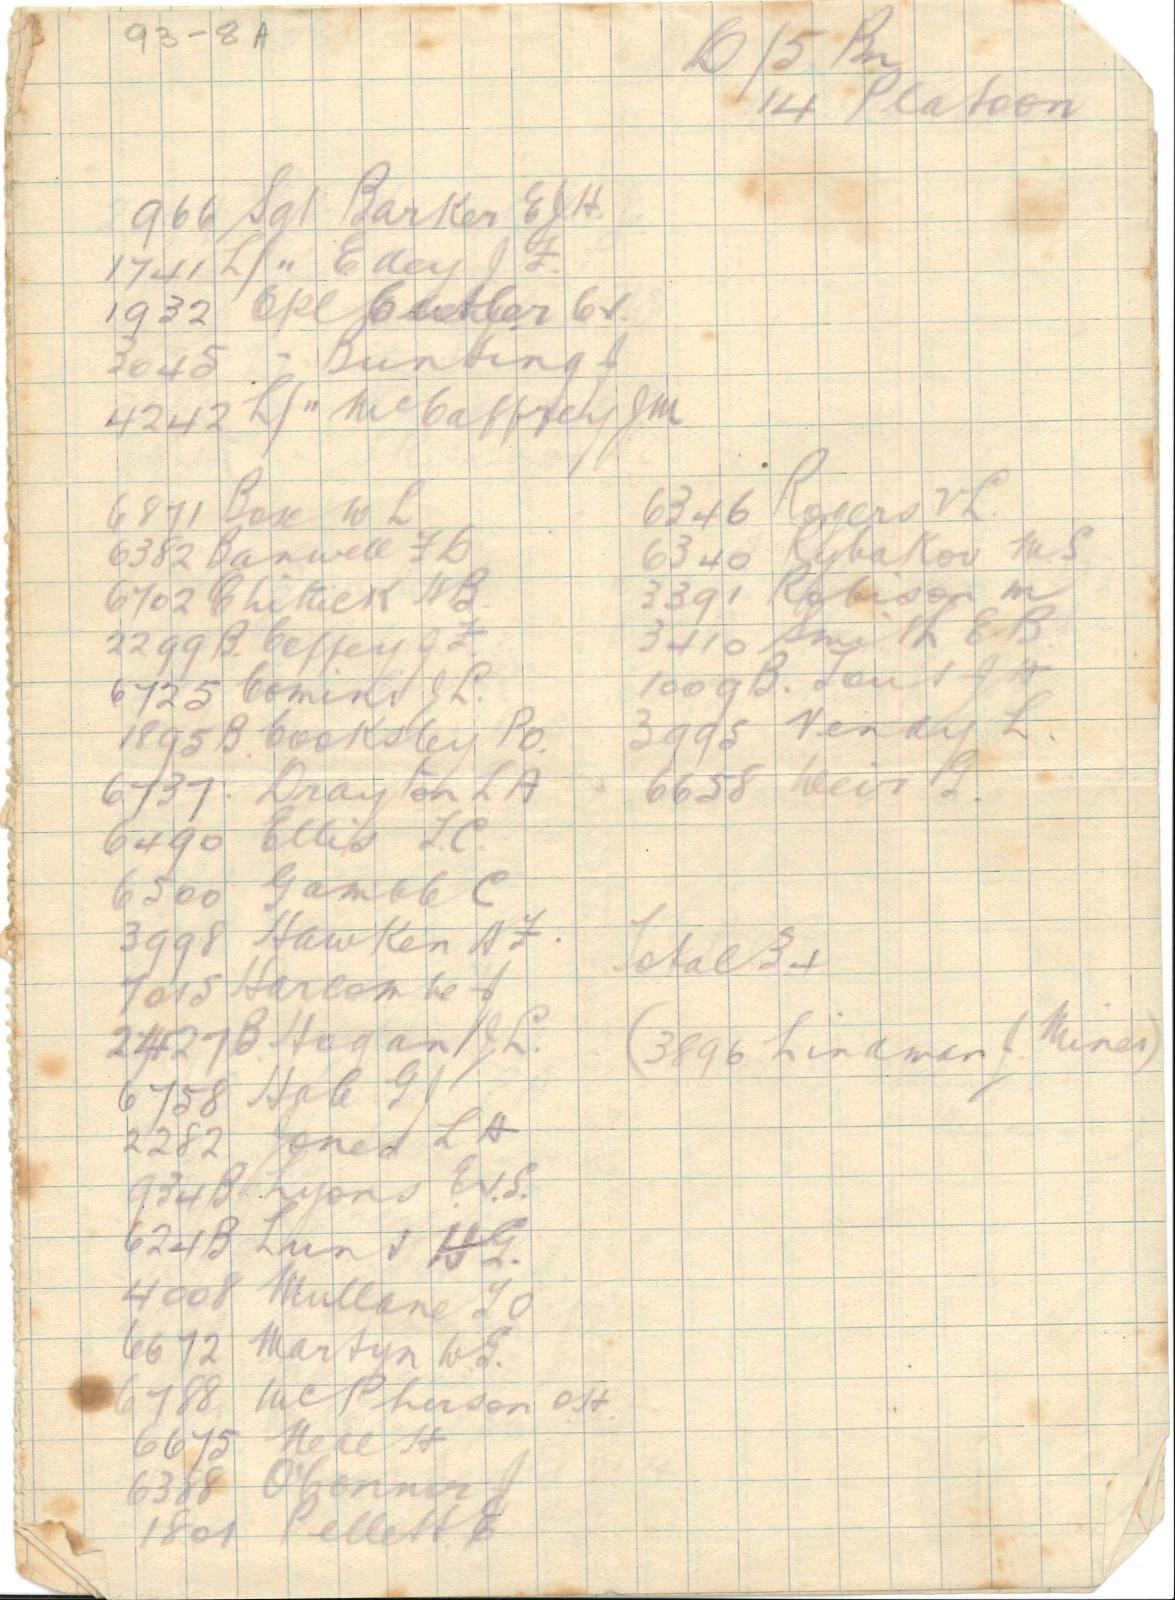 93-8A
D/15 Bn
14 Platoon
966 Sgt Barker E J H.
1741 L/" Edey J F.
1932 Cpl Butler C V.
3045 " Bunting J
4242 L/" McCaffrey J M
6871 Box W L
6382 Banwell F D
6702 Chittick A B.
2299B. Coffey J F.
6725 Comins J L.
1895B. Cooksley P O.
6737. Drayton L A
6490 Ellis T. C.
6500 Gamble C
3998 Hawken A F.
7015 Harcombe J
2427B. Hogan J L.
6758 Hole G J
2282 Jones L A
934B Lyons E. V. S.
624B Lunt G.
4008 Mullane T O
6672 Martyn W G.
6788 McPherson O. H.
6675 Neal H
6388 O'Connor J
1801 Pellett E
6346 Rogers V L.
6340 Rybakov M. S.
3391 Robison M
3410 Smith E B.
1009B. Tout J H
3995 Venay L.
6658 Weir G.
Total 34
(3896 Lindman J. Mines)